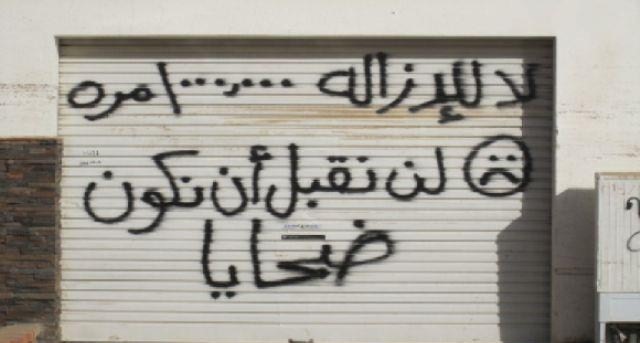 لا للإزاله ........ امره
لن نقبل أن نكون
ضحايا